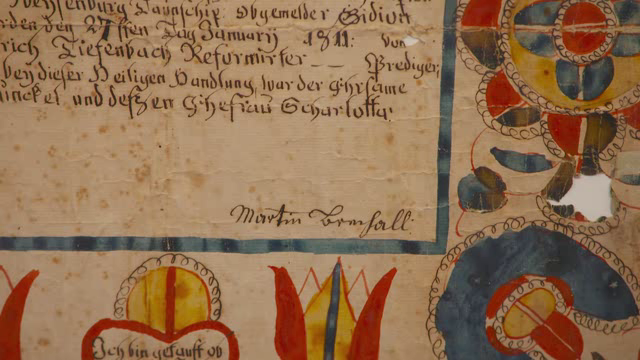 Taunschip. Obgemelder Sidion
den 27sten Tag Januarij 1811: von
rich Tiefenbach Reformirter — Prediger
bey dieser Heiligen Handlung war der Ehrsame
und deßen Ehefrau Scharlotta.
Martin Brechall
Ich bin getauft ob